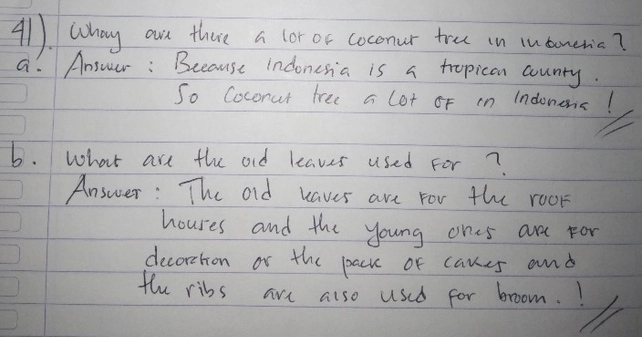 41). Whay are there a lot of coconut tree in indonesia?
a. Answer : Because Indonesia is a tropican county.
So Coconut tree a lot of in Indonesia !
b. What are the old leaves used for ?
Answer : The old leaves are for the roof
houses and the young ones are for
decoration or the pack of cakes and
the ribs are also used for broom. !